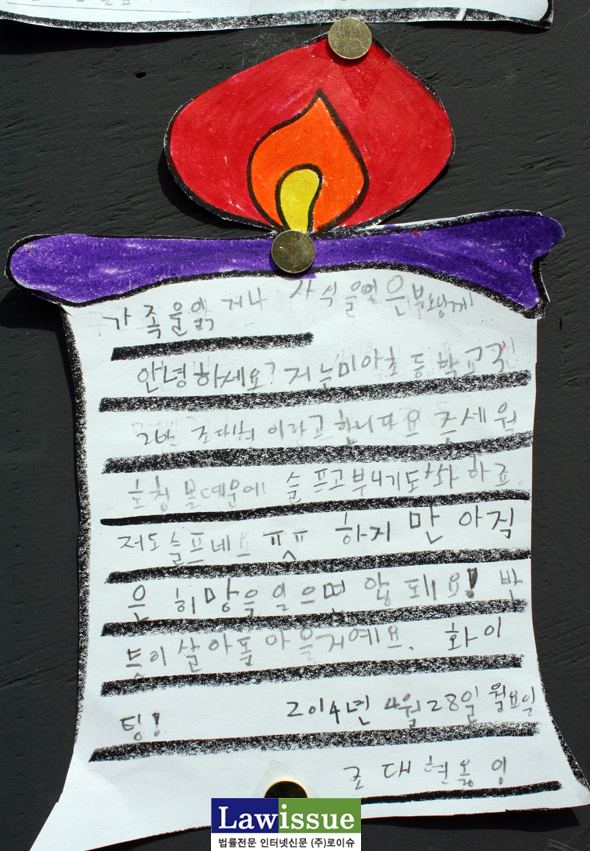 가족을잃거나 자식을잃은부모님께
안녕하세요? 저는미아초등학교
조대현 이라고합니다요즘세월
호침몰때문에 슬프고부니기도 하죠
저도슬프네요 ㅠㅠ 하지 만 아직
은 희망을잃으면 않돼요! 반
듯이살아돌아올거예요. 화이
팅! 2014년 4월28일 월요일
조대현올
Lawissue
법률전문 인터넷신문 (주)로이슈